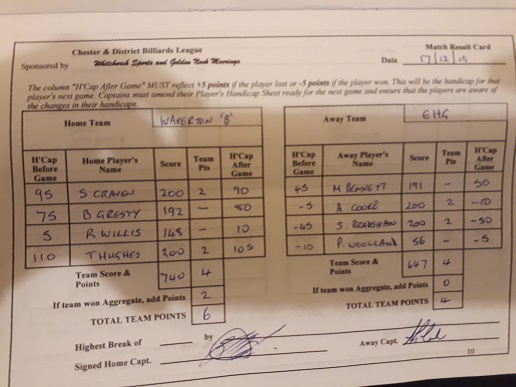 Chester & District Billiards League
Match Result Card
Sponsored by Whitchurch Sports and Golden Nook Moorings
Date 17/12/19
The column "H'Cap After Game" MUST reflect +5 points if the player lost or -5 points if the player won. This will be the handicap for that
player's next game. Captains must amend their Player's Handicap Sheet ready for the next game and ensure that the players are aware of
the changes in their handicaps.
Home Team WAVERTON 'B'
H'Cap Before Game Home Player's Name Score Team Pts H'Cap After Game
95 S CRAVEN 200 2 90
75 B GRESTY 192 - 80
5 R WILLIS 148 - 10
110 T HUGHES 200 2 105
Team Score & Points 740 4
If team won Aggregate, add Points 2
TOTAL TEAM POINTS 6
Away Team EHG
H'Cap Before Game Away Player's Name Score Team Pts H'Cap After Game
45 M BENNETT 191 - 50
-5 A COOKE 200 2 -10
-45 S. BRADSHAW 200 2 -50
-10 P. WOOLLAND 56 - -5
Team Score & Points 647 4
If team won Aggregate, add Points 0
TOTAL TEAM POINTS 4
Highest Break of by
Signed Home Capt.
Away Capt.
10